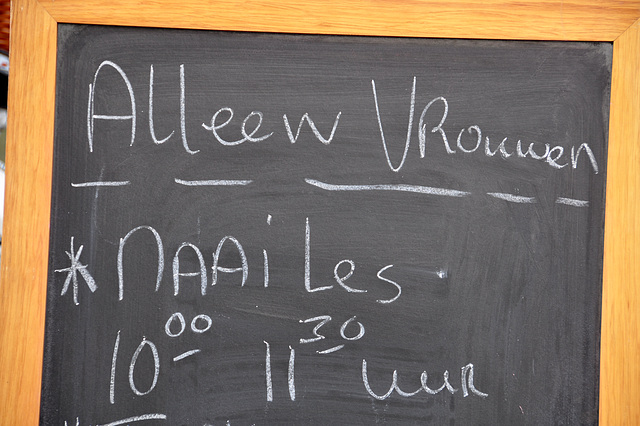 Alleen Vrouwen
* NAAi Les
10 00 11 30 uur